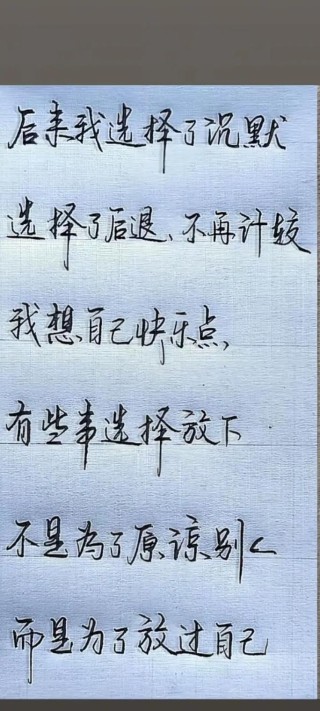 后来我选择了沉默
选择了后退、不再计较
我想自己快乐点,
有些事选择放下
不是为了原谅别人
而是为了放过自己